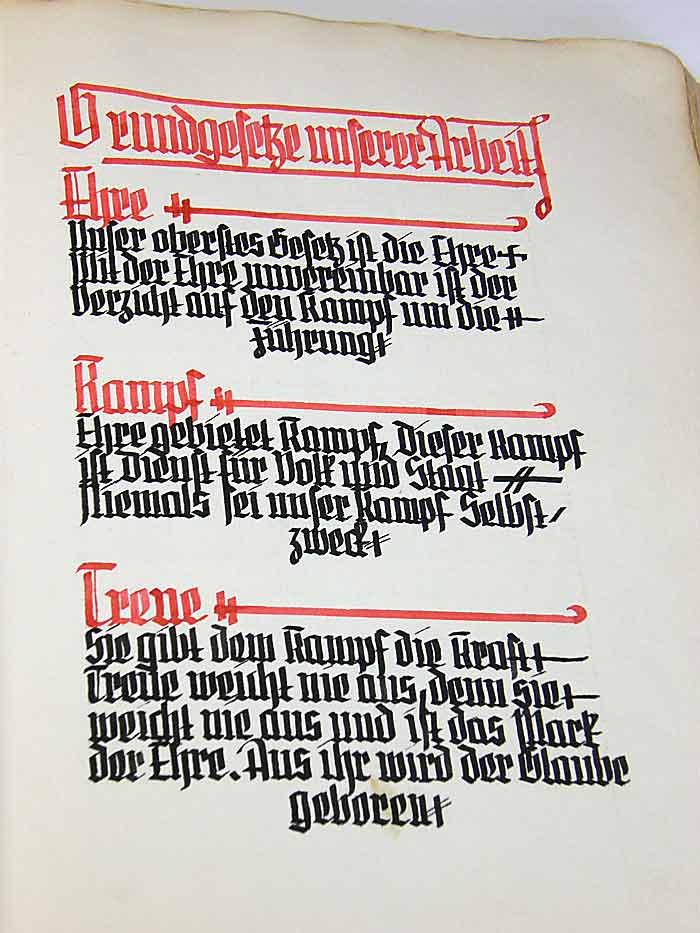 Grundgesetze unserer Arbeit
Ehre
Unser oberstes Gesetz ist die Ehre
Mit der Ehre unvereinbar ist der
Verzicht auf den Kampf um die
Führung
Kampf
Ehre gebietet Kampf, Dieser Kampf
ist Dienst für Volk und Staat
Niemals sei unser Kampf Selbst/
zweck
Treue
Sie gibt dem Kampf die Kraft
Treue weicht nie aus, denn sie
weicht nie aus und ist das Mark
der Ehre. Aus ihr wird der Glaube
geboren